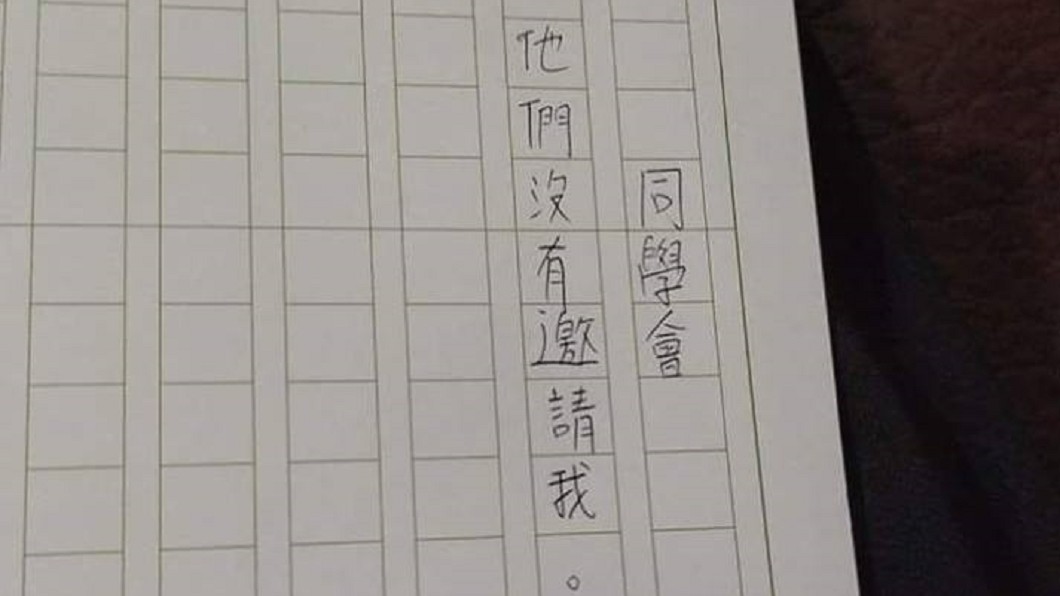 同學會
他們沒有邀請我。